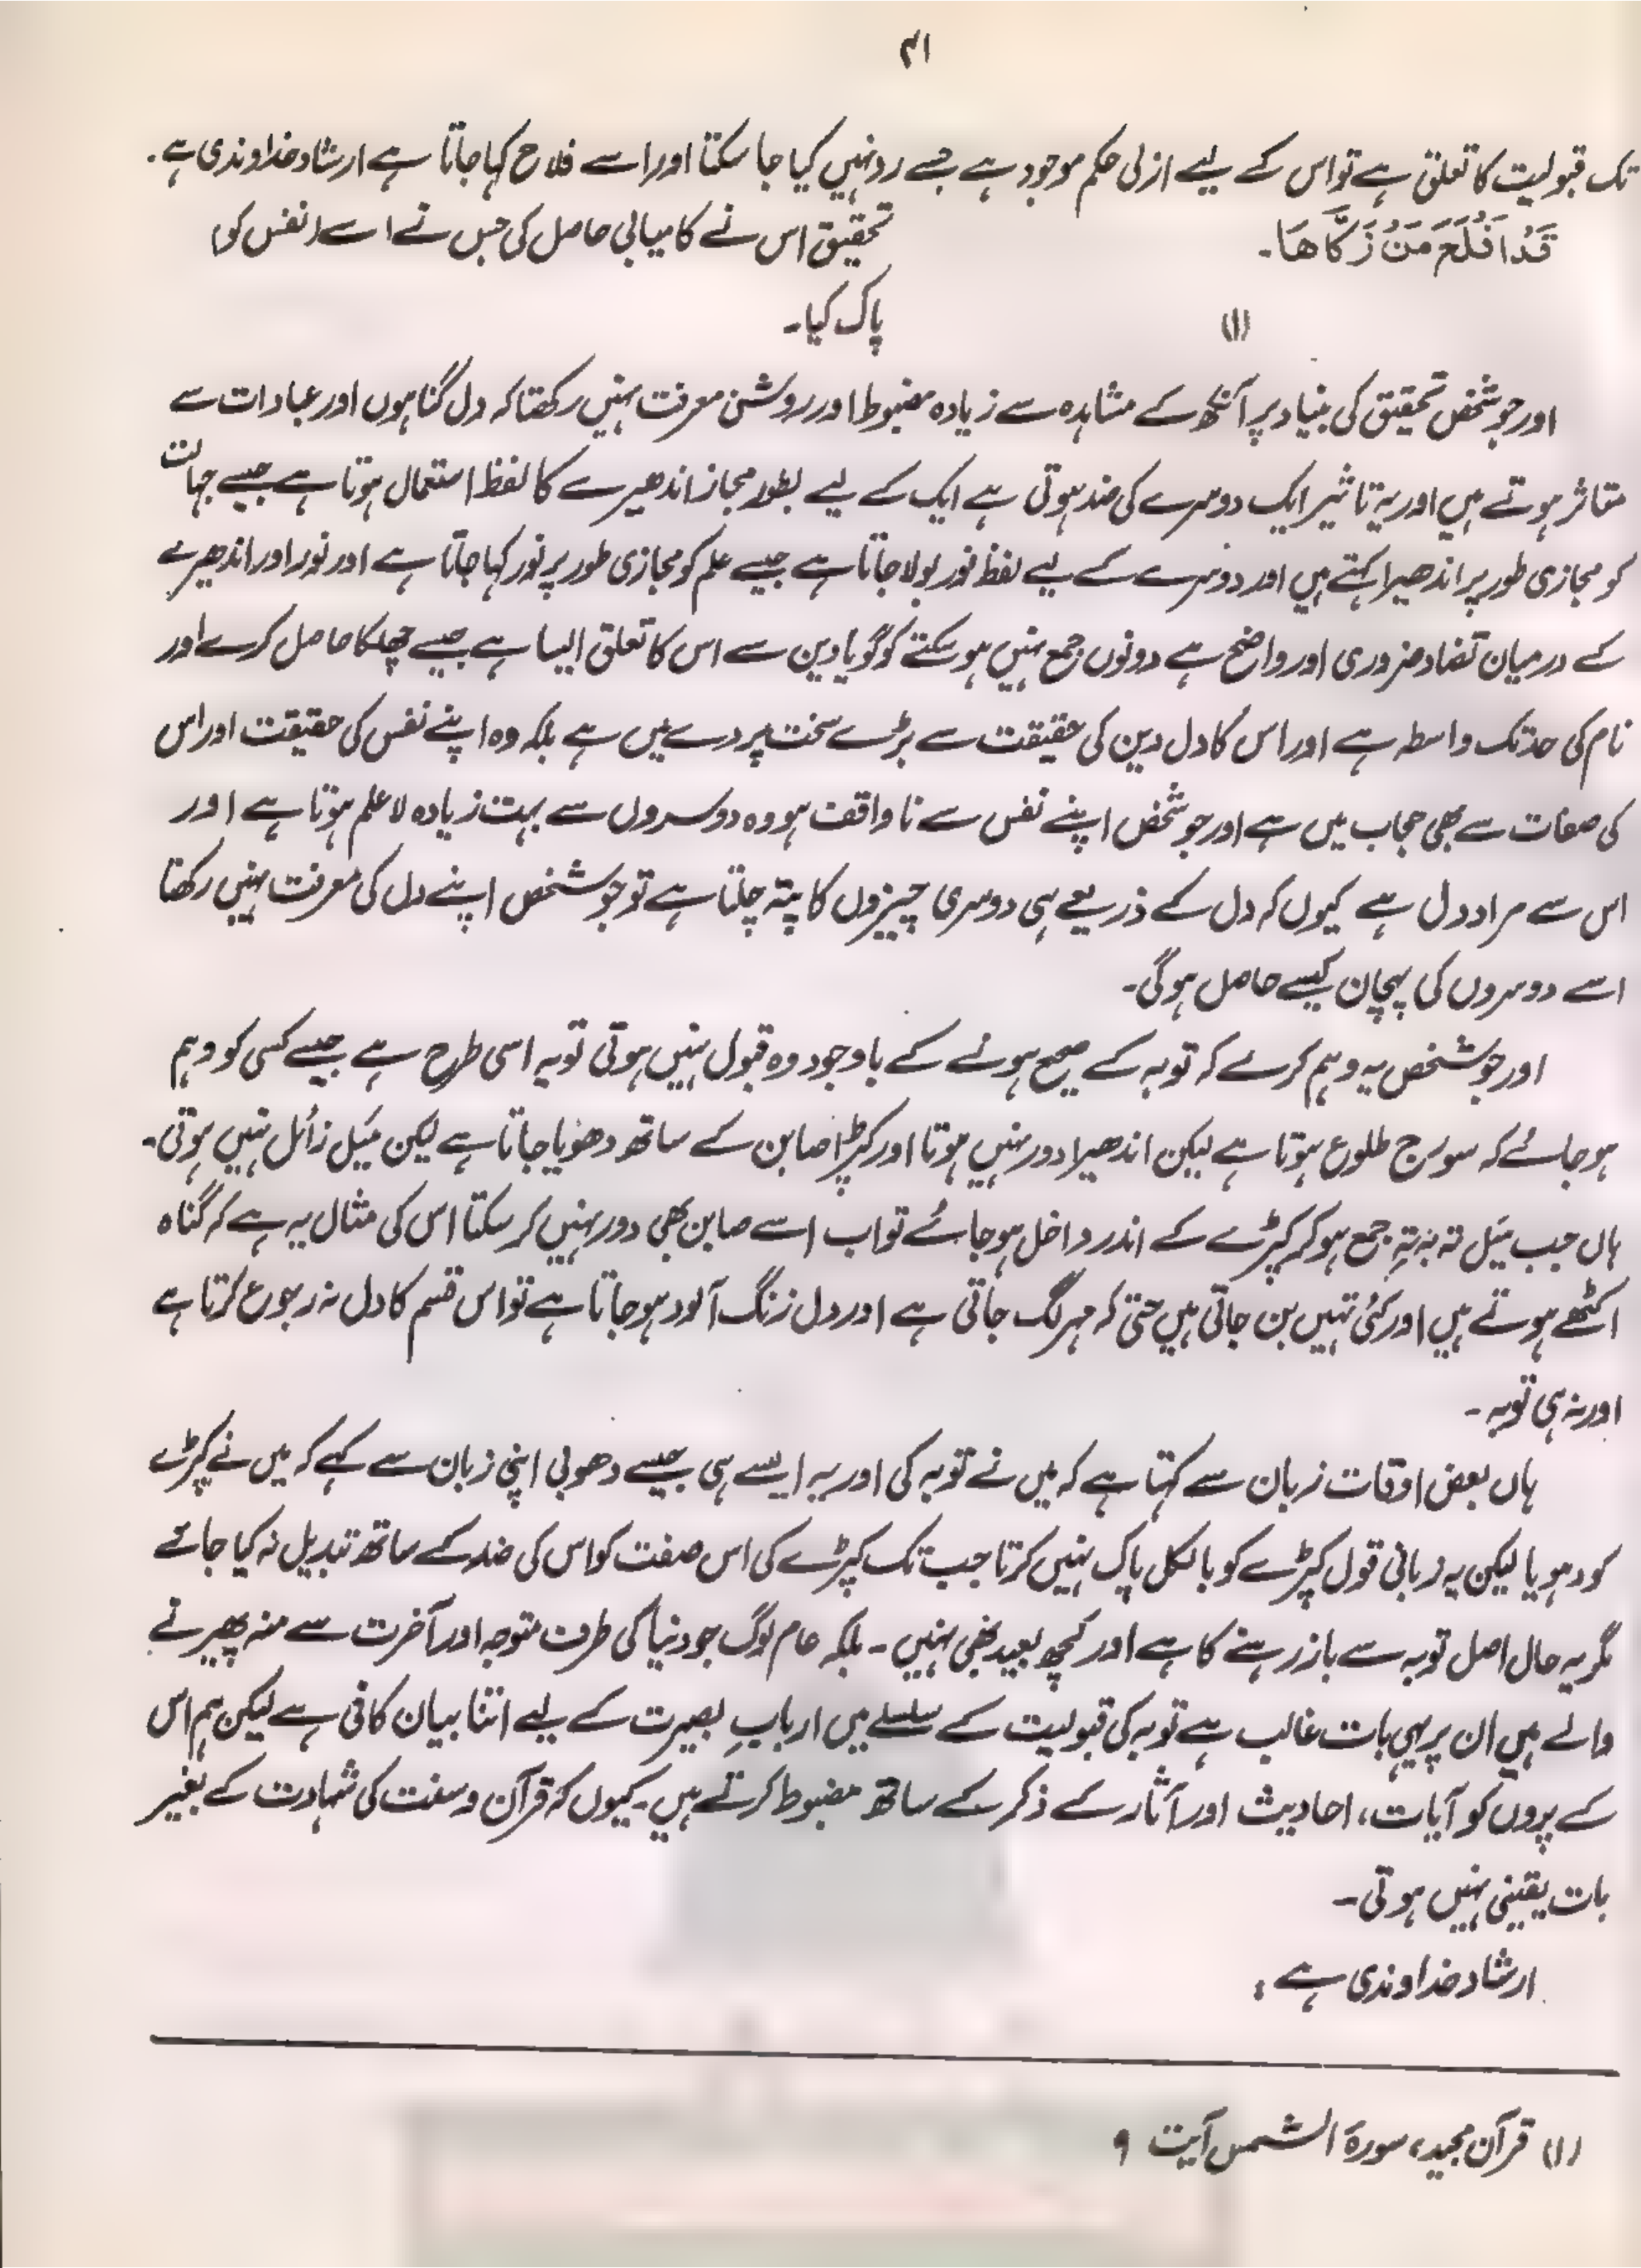 ۴۱
تک قبولیت کا تعلق ہے تو اس کے لیے ازلی حکم موجود ہے جسے رد نہیں کیا جا سکتا اور اسے فلاح کہا جاتا ہے ارشاد خداوندی ہے.
قَدْ اَفْلَحَ مَنْ زَكَّاهَا۔
تحقیق اس نے کامیابی حاصل کی جس نے اسے (نفس کو)
پاک کیا۔
(۱)
اور جو شخص تحقیق کی بنیاد پر آنکھ کے مشاہدہ سے زیادہ مضبوط اور روشن معرفت نہیں رکھتا کہ دل گناہوں اور عبادات سے
متاثر ہوتے ہیں اور یہ تاثیر ایک دوسرے کی ضد ہوتی ہے ایک کے لیے بطور مجاز اندھیرے کا لفظ استعمال ہوتا ہے جیسے جہالت
کو مجازی طور پر اندھیرا کہتے ہیں اور دوسرے کے لیے لفظ نور بولا جاتا ہے جیسے علم کو مجازی طور پر نور کہا جاتا ہے اور نور اور اندھیرے
کے درمیان تضاد ضروری اور واضح ہے دونوں جمع نہیں ہو سکتے گویا دین سے اس کا تعلق ایسا ہے جیسے چھلکا حاصل کرے اور
نام کی حد تک واسطہ ہے اور اس کا دل دین کی حقیقت سے بڑے سخت پردے میں ہے بلکہ وہ اپنے نفس کی حقیقت اور اس
کی صفات سے بھی حجاب میں ہے اور جو شخص اپنے نفس سے ناواقف ہو وہ دوسروں سے بہت زیادہ لا علم ہوتا ہے اور
اس سے مراد دل ہے کیوں کہ دل کے ذریعے ہی دوسری چیزوں کا پتہ چلتا ہے تو جو شخص اپنے دل کی معرفت نہیں رکھتا
اسے دوسروں کی پہچان کیسے حاصل ہوگی۔
اور جو شخص یہ وہم کرے کہ توبہ کے صحیح ہونے کے باوجود وہ قبول نہیں ہوتی تو یہ اسی طرح ہے جیسے کسی کو وہم
ہو جائے کہ سورج طلوع ہوتا ہے لیکن اندھیرا دور نہیں ہوتا اور کپڑا صابن کے ساتھ دھویا جاتا ہے لیکن میَل زائل نہیں ہوتی۔
ہاں جب میَل تہ بہ تہِ جمع ہو کر کپڑے کے اندر داخل ہو جائے تو اب اسے صابن بھی دور نہیں کر سکتا اس کی مثال یہ ہے کہ گناہ
اکٹھے ہوتے ہیں اور کئی تہیں بن جاتی ہیں حتیٰ کہ مہر لگ جاتی ہے اور دل زنگ آلود ہو جاتا ہے تو اس قسم کا دل نہ رجوع کرتا ہے
اور نہ ہی توبہ۔
ہاں بعض اوقات زبان سے کہتا ہے کہ میں نے توبہ کی اور یہ ایسے ہی جیسے دھوبی اپنی زبان سے کہے کہ میں نے کپڑے
کو دھویا لیکن یہ زبانی قول کپڑے کو بالکل پاک نہیں کرتا جب تک کپڑے کی اس صفت کو اس کی ضد کے ساتھ تبدیل نہ کیا جائے
مگر یہ حال اصل توبہ سے باز رہنے کا ہے اور کچھ بعید بھی نہیں۔ بلکہ عام لوگ جو دنیا کی طرف متوجہ اور آخرت سے منہ پھیرنے
والے ہیں ان پر یہی بات غالب ہے توبہ کی قبولیت کے سلسلے میں اربابِ بصیرت کے لیے اتنا بیان کافی ہے لیکن ہم اس
کے پروں کو آیات، احادیث اور آثار کے ذکر کے ساتھ مضبوط کرتے ہیں۔ کیوں کہ قرآن و سنت کی شہادت کے بغیر
بات یقینی نہیں ہوتی۔
ارشاد خداوندی ہے:
(۱) قرآن مجید، سورۃ الشمس آیت ۹